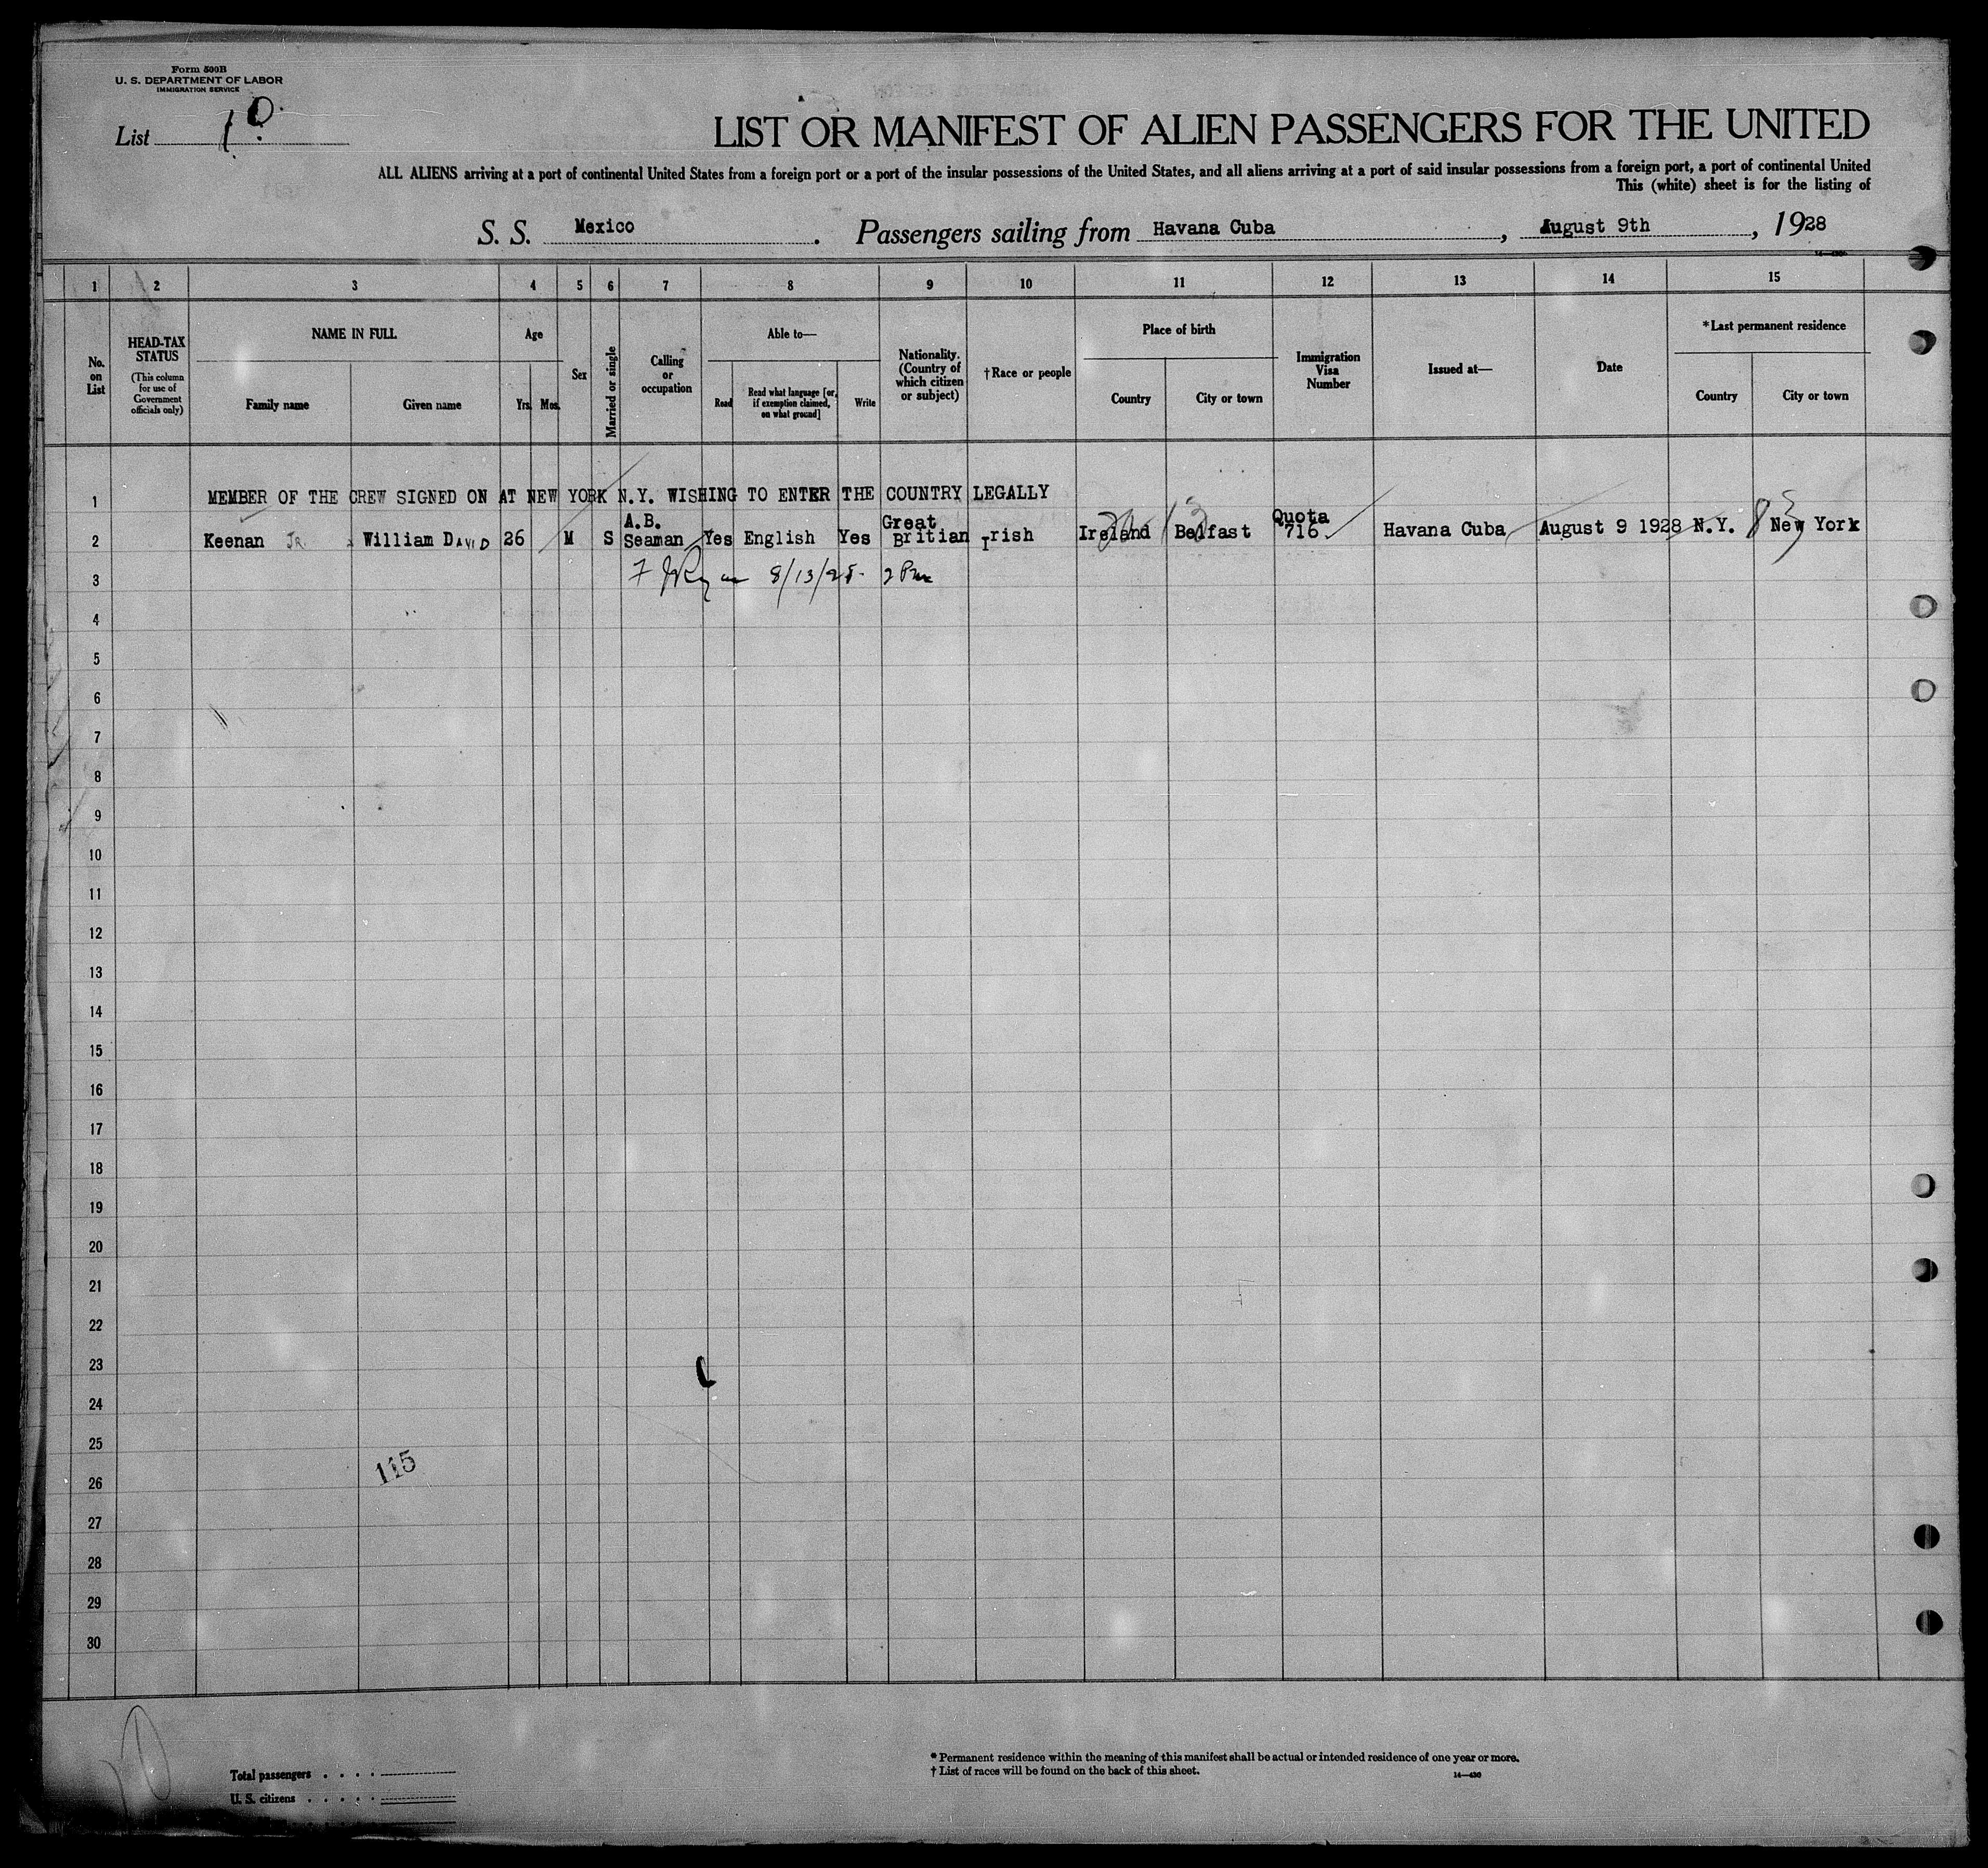 Form 500B
U. S. DEPARTMENT OF LABOR
IMMIGRATION SERVICE
List 10
LIST OR MANIFEST OF ALIEN PASSENGERS FOR THE UNITED
ALL ALIENS arriving at a port of continental United States from a foreign port or a port of the insular possessions of the United States, and all aliens arriving at a port of said insular possessions from a foreign port, a port of continental United
This (white) sheet is for the listing of
S. S. Mexico. Passengers sailing from Havana Cuba, August 9th, 1928
14—430
1 2 3 4 5 6 7 8 9 10 11 12 13 14 15
No. on List
HEAD-TAX STATUS
(This column for use of Government officials only)
NAME IN FULL
Family name Given name
Age
Yrs. Mos.
Sex
Married or single
Calling or occupation
Able to—
Read
Read what language [or, if exemption claimed, on what ground]
Write
Nationality. (Country of which citizen or subject)
†Race or people
Place of birth
Country City or town
Immigration Visa Number
Issued at—
Date
*Last permanent residence
Country City or town
1 MEMBER OF THE CREW SIGNED ON AT NEW YORK N.Y. WISHING TO ENTER THE COUNTRY LEGALLY
2 Keenan JR. William DAVID 26 M S A.B. Seaman Yes English Yes Great Britian Irish Ireland Belfast Quota 716 Havana Cuba August 9 1928 N.Y. New York
3 8/13/28 2 Pm
4
5
6
7
8
9
10
11
12
13
14
15
16
17
18
19
20
21
22
23
24
25
115
26
27
28
29
30
* Permanent residence within the meaning of this manifest shall be actual or intended residence of one year or more.
† List of races will be found on the back of this sheet.
14—430
Total passengers . . . .
U. S. citizens . . . . .